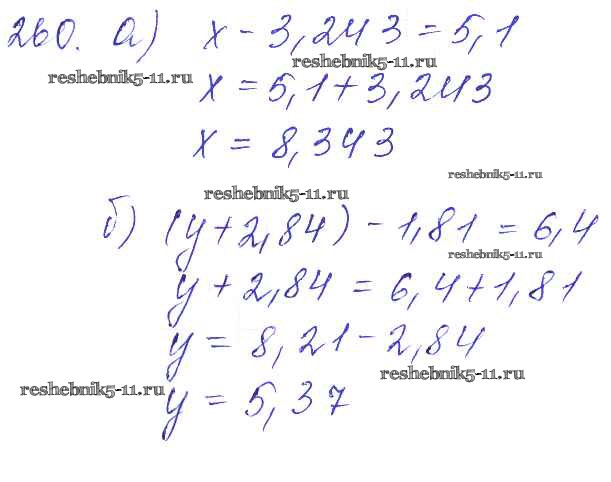 260. а) x - 3,243 = 5,1
reshebnik5-11.ru reshebnik5-11.ru
x = 5,1 + 3,243
x = 8,343
reshebnik5-11.ru
reshebnik5-11.ru
б) (y + 2,84) - 1,81 = 6,4
reshebnik5-11.ru
y + 2,84 = 6,4 + 1,81
y = 8,21 - 2,84
reshebnik5-11.ru
reshebnik5-11.ru
y = 5,37